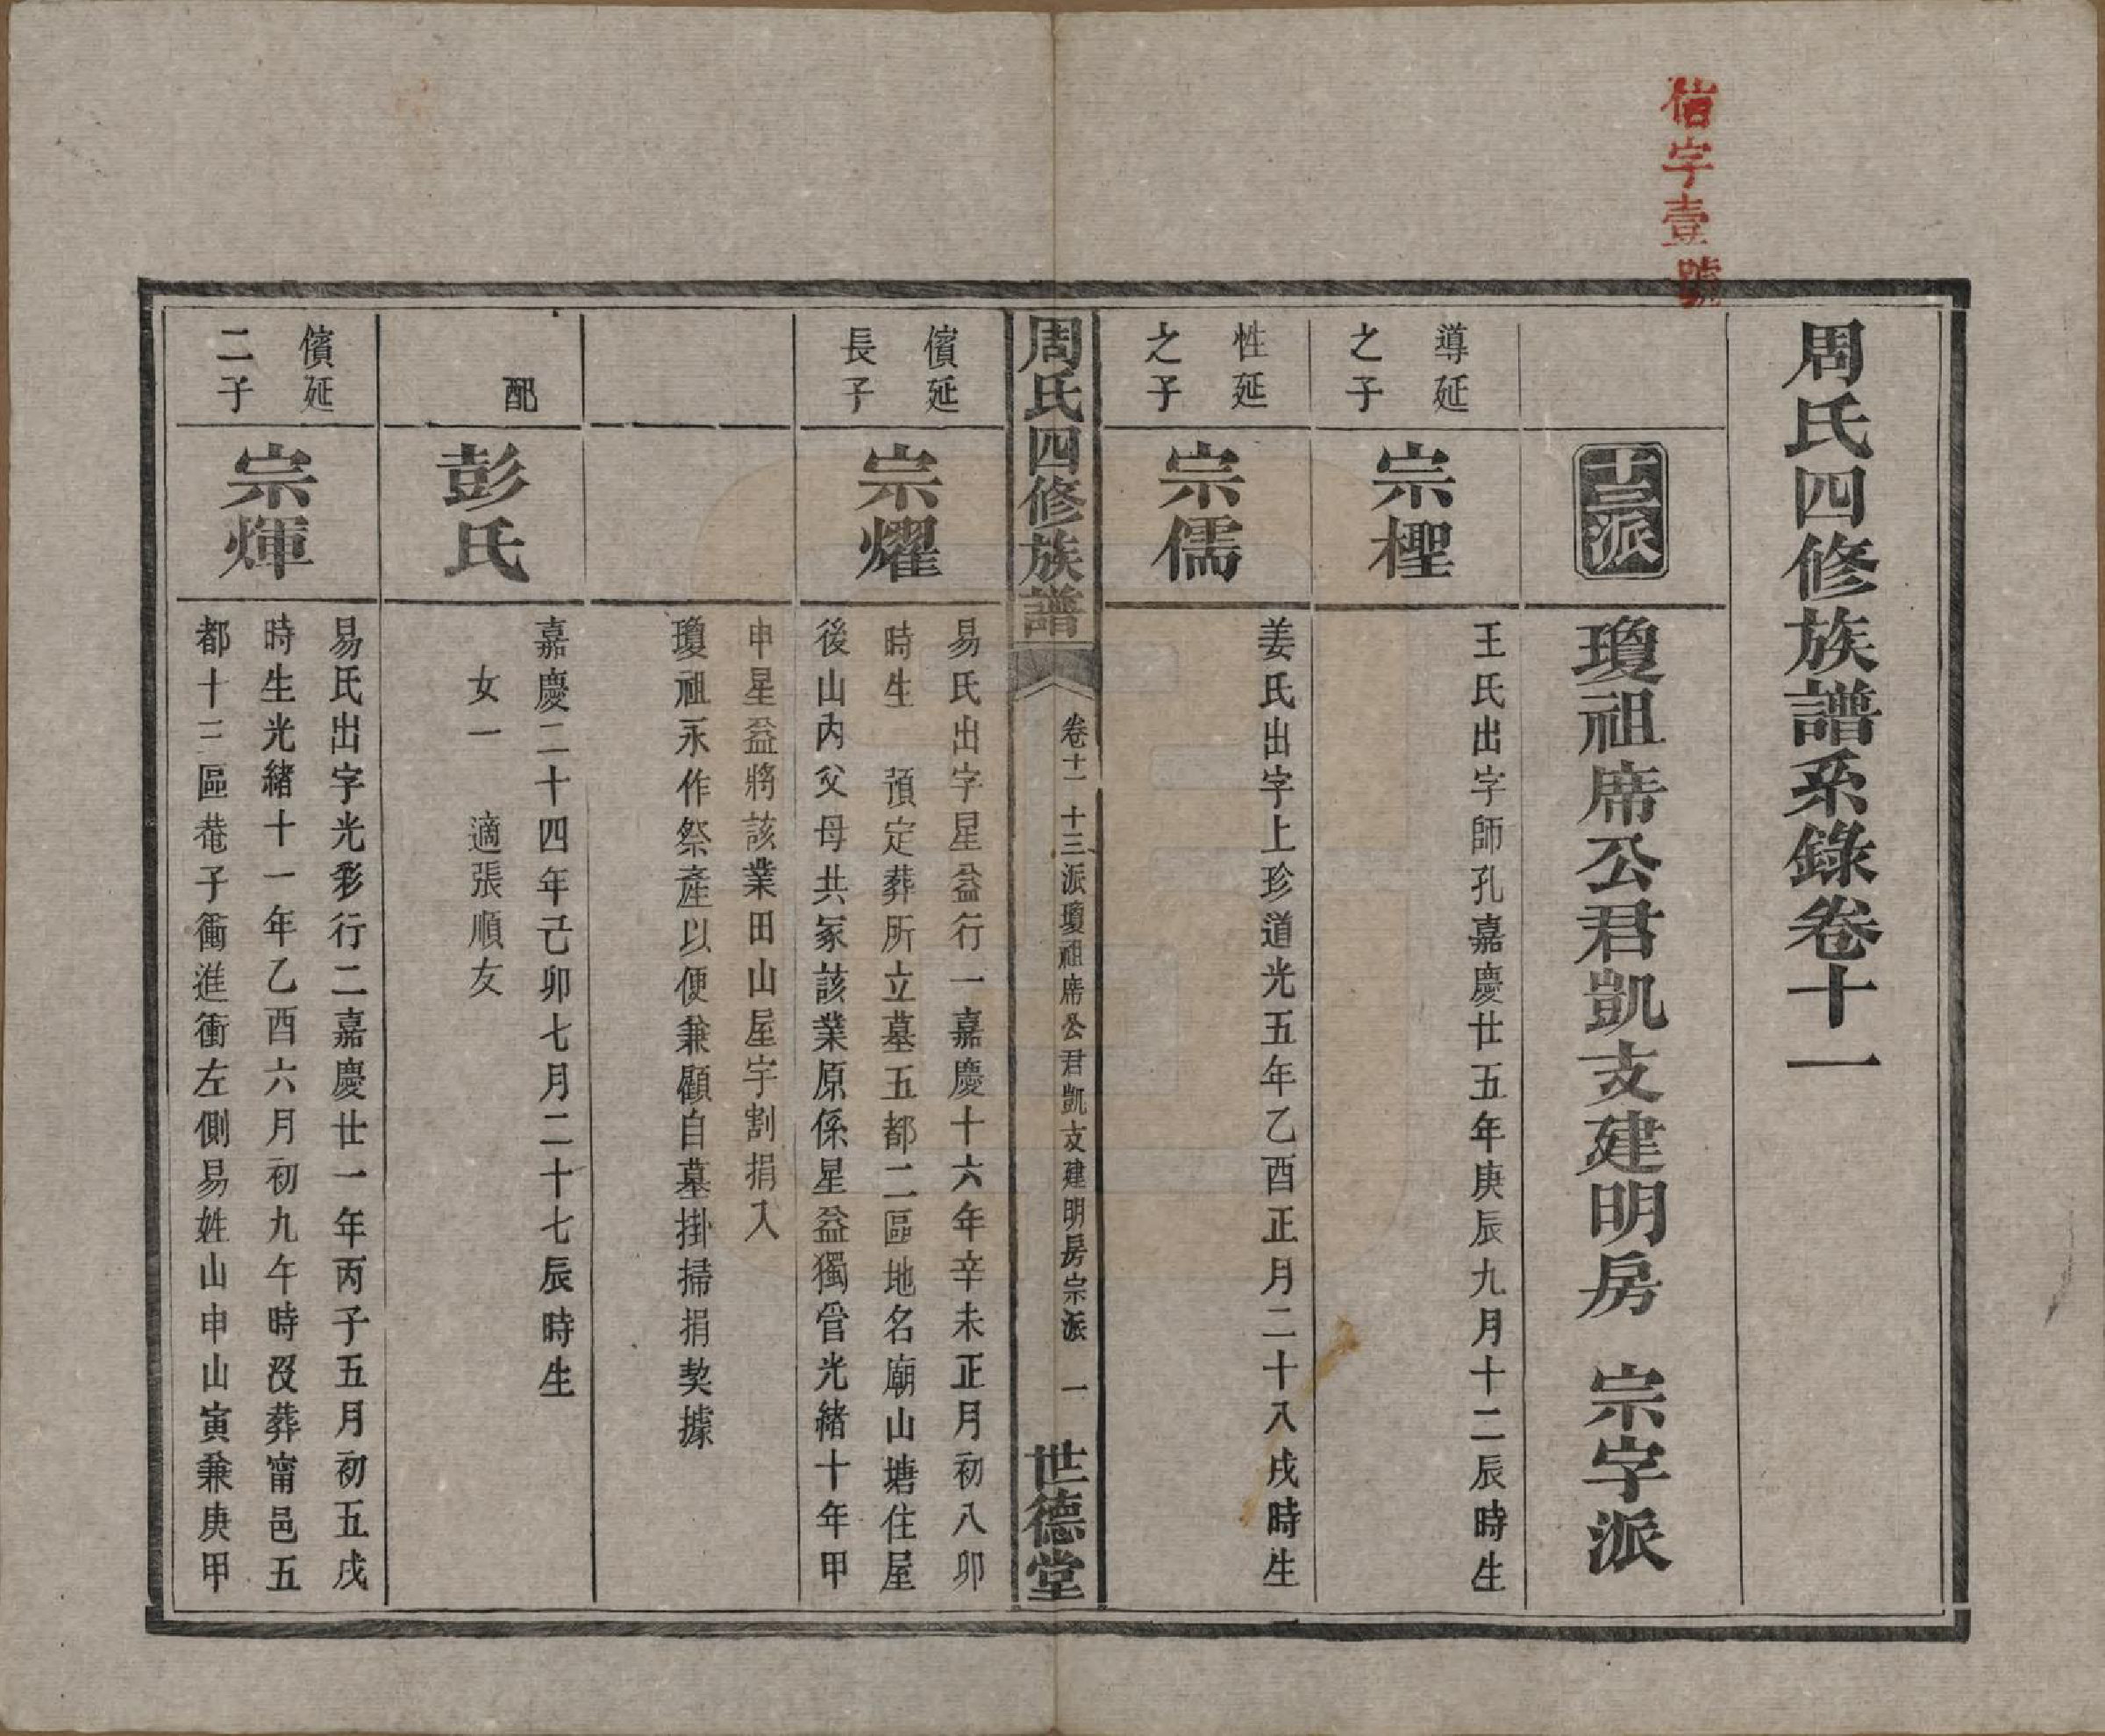 信字壹號
周氏四修族譜系錄卷十一
十三派
瓊祖席公君凱支建明房 宗字派
導延
之子
宗檉
王氏出字師孔嘉慶廿五年庚辰九月十二辰時生
性延
之子
宗儒
姜氏出字上珍道光五年乙酉正月二十八戌時生
周氏四修族譜
卷十一 十三派瓊祖席公君凱支建明房宗派 一
世德堂
儐延
長子
宗燿
易氏出字星益行一嘉慶十六年辛未正月初八卯
時生 預定葬所立墓五都二區地名廟山塘住屋
後山內父母共冢該業原係星益獨管光緒十年甲
申星益將該業田山屋宇割捐入
瓊祖永作祭產以便兼顧自墓掛掃捐契據
配
彭氏
嘉慶二十四年己卯七月二十七辰時生
女一 適張順友
儐延
二子
宗煇
易氏出字光彩行二嘉慶廿一年丙子五月初五戌
時生光緒十一年乙酉六月初九午時歿葬甯邑五
都十三區菴子衝進衝左側易姓山申山寅兼庚甲